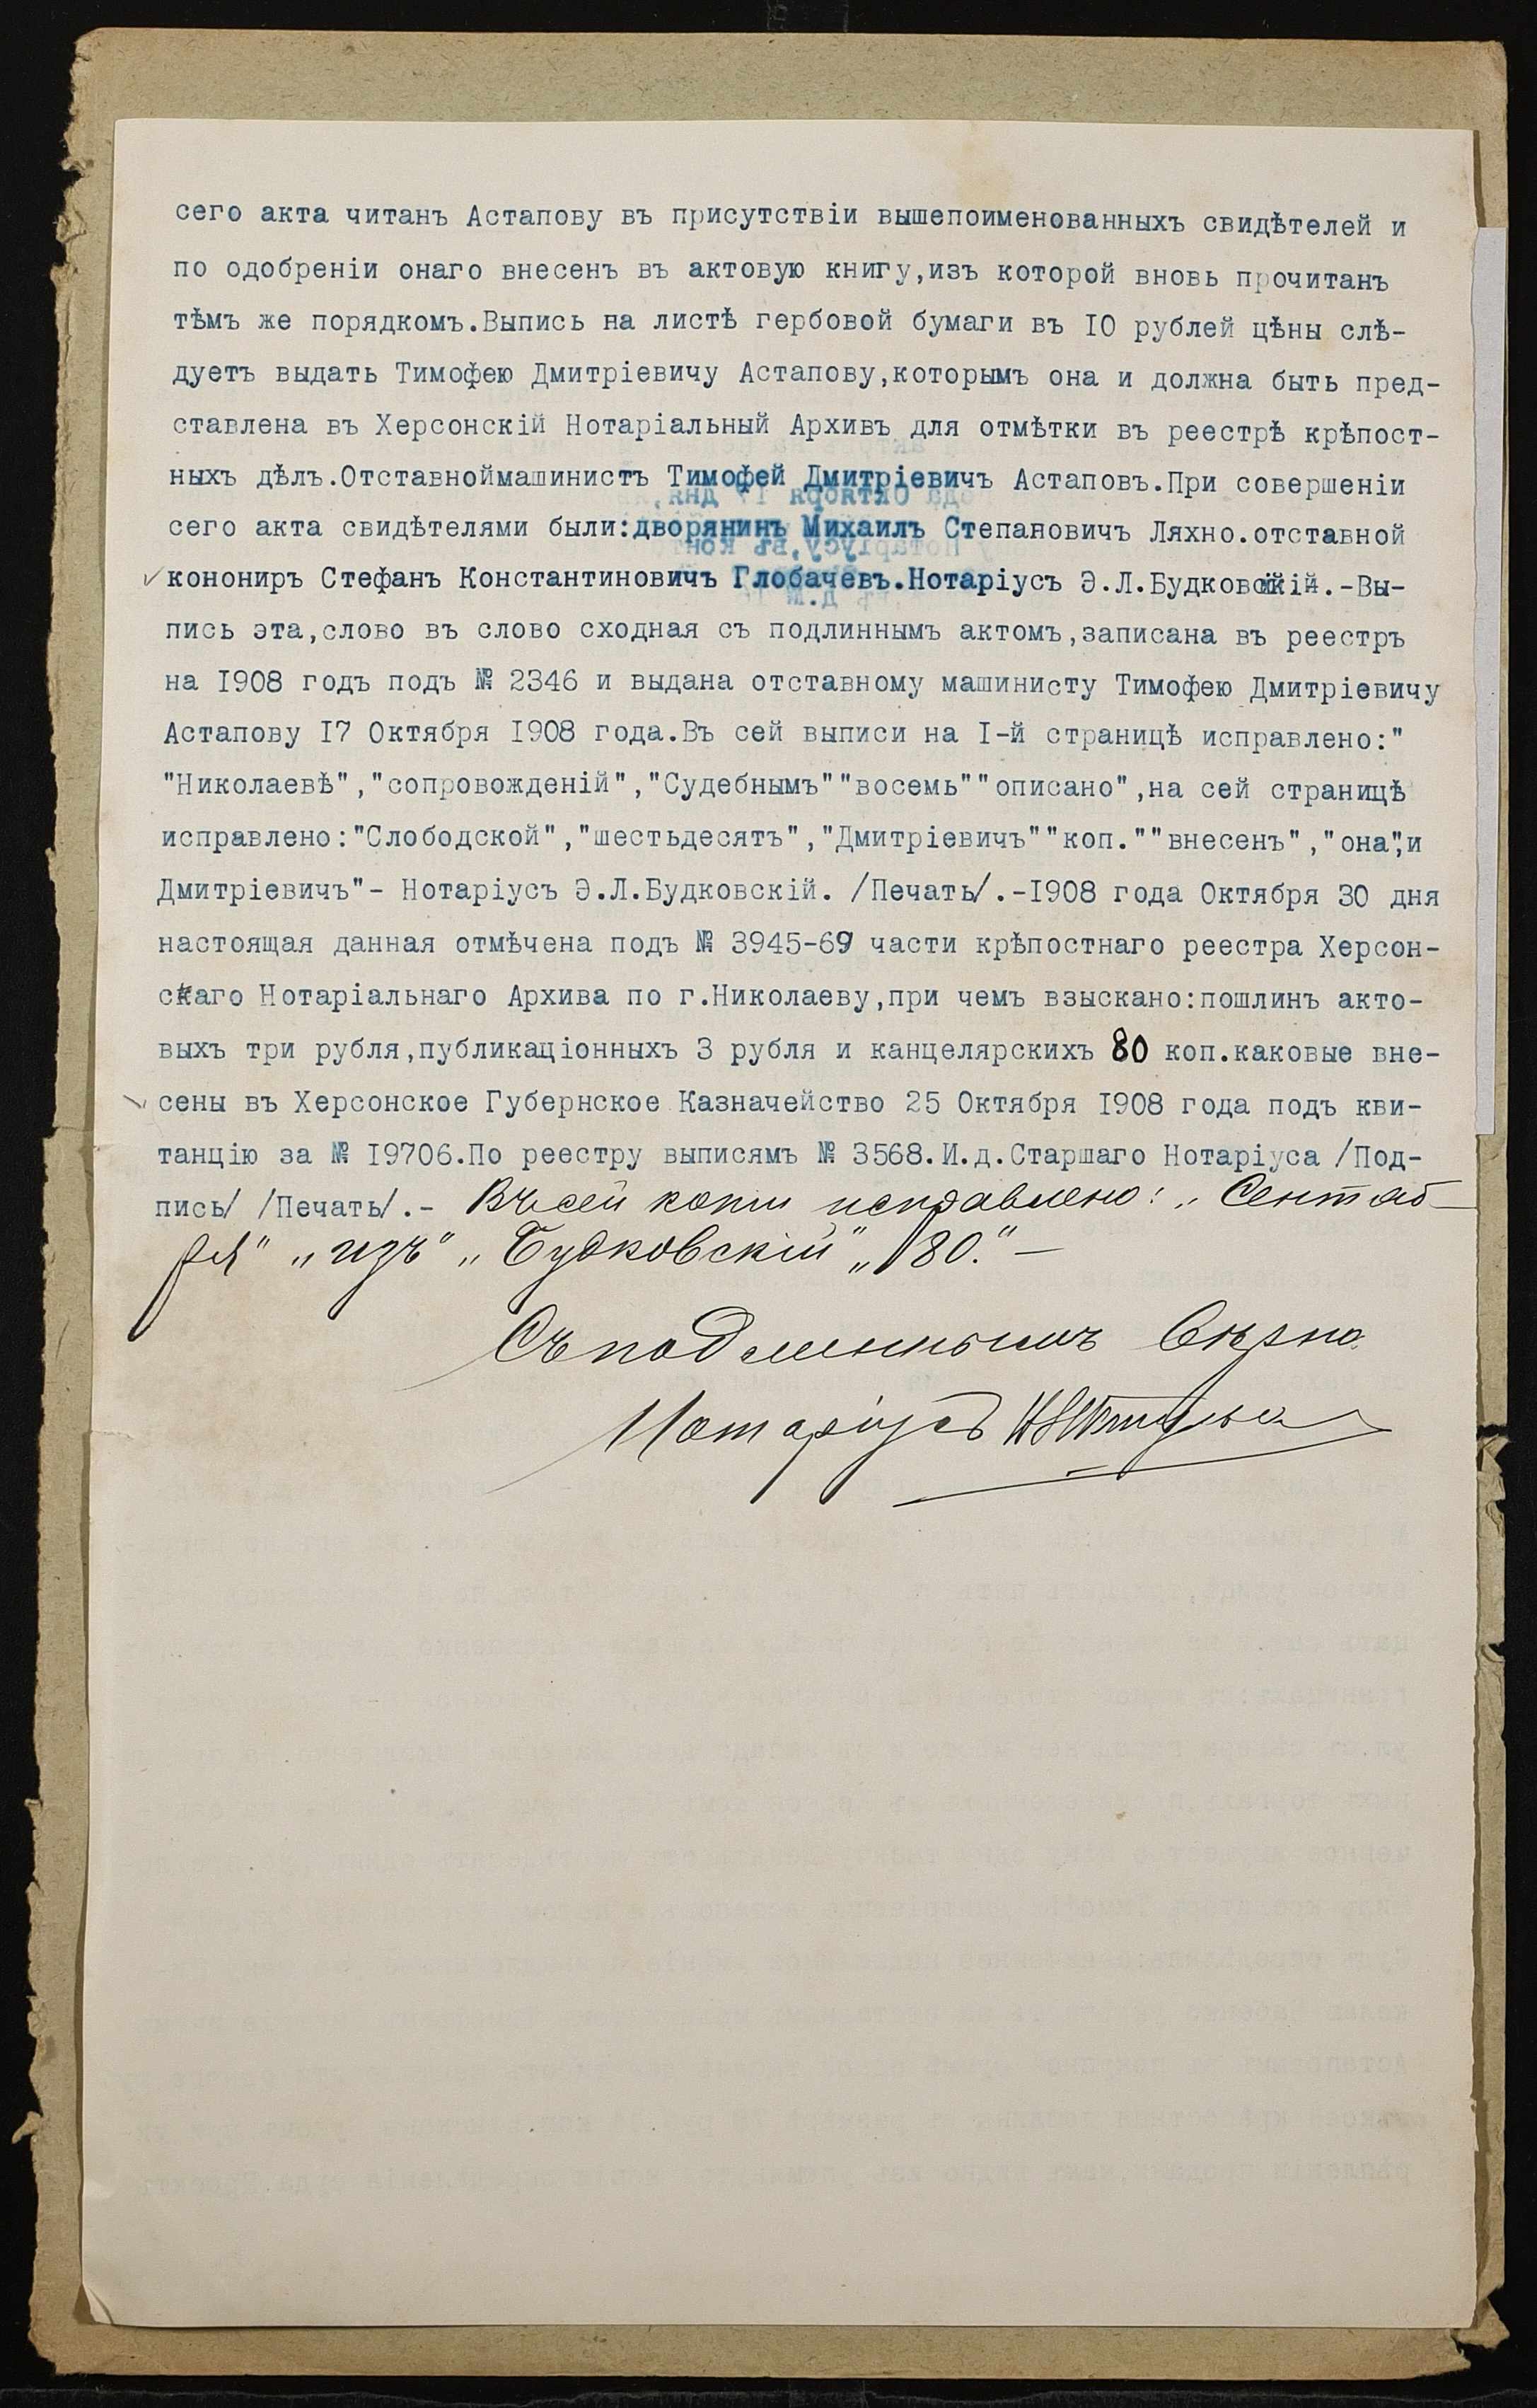 сего акта читанъ Астапову въ присутствіи вышепоименованныхъ свидѣтелей и
по одобреніи онаго внесенъ въ актовую книгу,изъ которой вновь прочитанъ
тѣмъ же порядкомъ.Выпись на листѣ гербовой бумаги въ IO рублей цѣны слѣ-
дуетъ выдать Тимофею Дмитріевичу Астапову,которымъ она и должна быть пред-
ставлена въ Херсонскій Нотаріальный Архивъ для отмѣтки въ реестрѣ крѣпост-
ныхъ дѣлъ.Отставноймашинистъ Тимофей Дмитріевичъ Астаповъ.При совершеніи
сего акта свидѣтелями были:дворянинъ Михаилъ Степановичъ Ляхно.отставной
конониръ Стефанъ Константиновичъ Глобачевъ.Нотаріусъ Э.Л.Будковскій.-Вы-
пись эта,слово въ слово сходная съ подлиннымъ актомъ,записана въ реестръ
на I908 годъ подъ № 2346 и выдана отставному машинисту Тимофею Дмитріевичу
Астапову I7 Октября I908 года.Въ сей выписи на I-й страницѣ исправлено:"
"Николаевѣ","сопровожденій","Судебнымъ""восемь""описано",на сей страницѣ
исправлено:"Слободской","шестьдесятъ","Дмитріевичъ""коп.""внесенъ","она",и
Дмитріевичъ"- Нотаріусъ Э.Л.Будковскій. /Печать/.-I908 года Октября 30 дня
настоящая данная отмѣчена подъ № 3945-69 части крѣпостнаго реестра Херсон-
скаго Нотаріальнаго Архива по г.Николаеву,при чемъ взыскано:пошлинъ акто-
выхъ три рубля,публикаціонныхъ 3 рубля и канцелярскихъ 80 коп.каковые вне-
сены въ Херсонское Губернское Казначейство 25 Октября I908 года подъ кви-
танцію за № I9706.По реестру выписямъ № 3568.И.д.Старшаго Нотаріуса /Под-
пись/ /Печать/.- Въ сей копіи исправлено: „Сентяб-
ря" „изъ" „Будковскій" „80."—
Съ подлиннымъ вѣрно.
Нотаріусъ